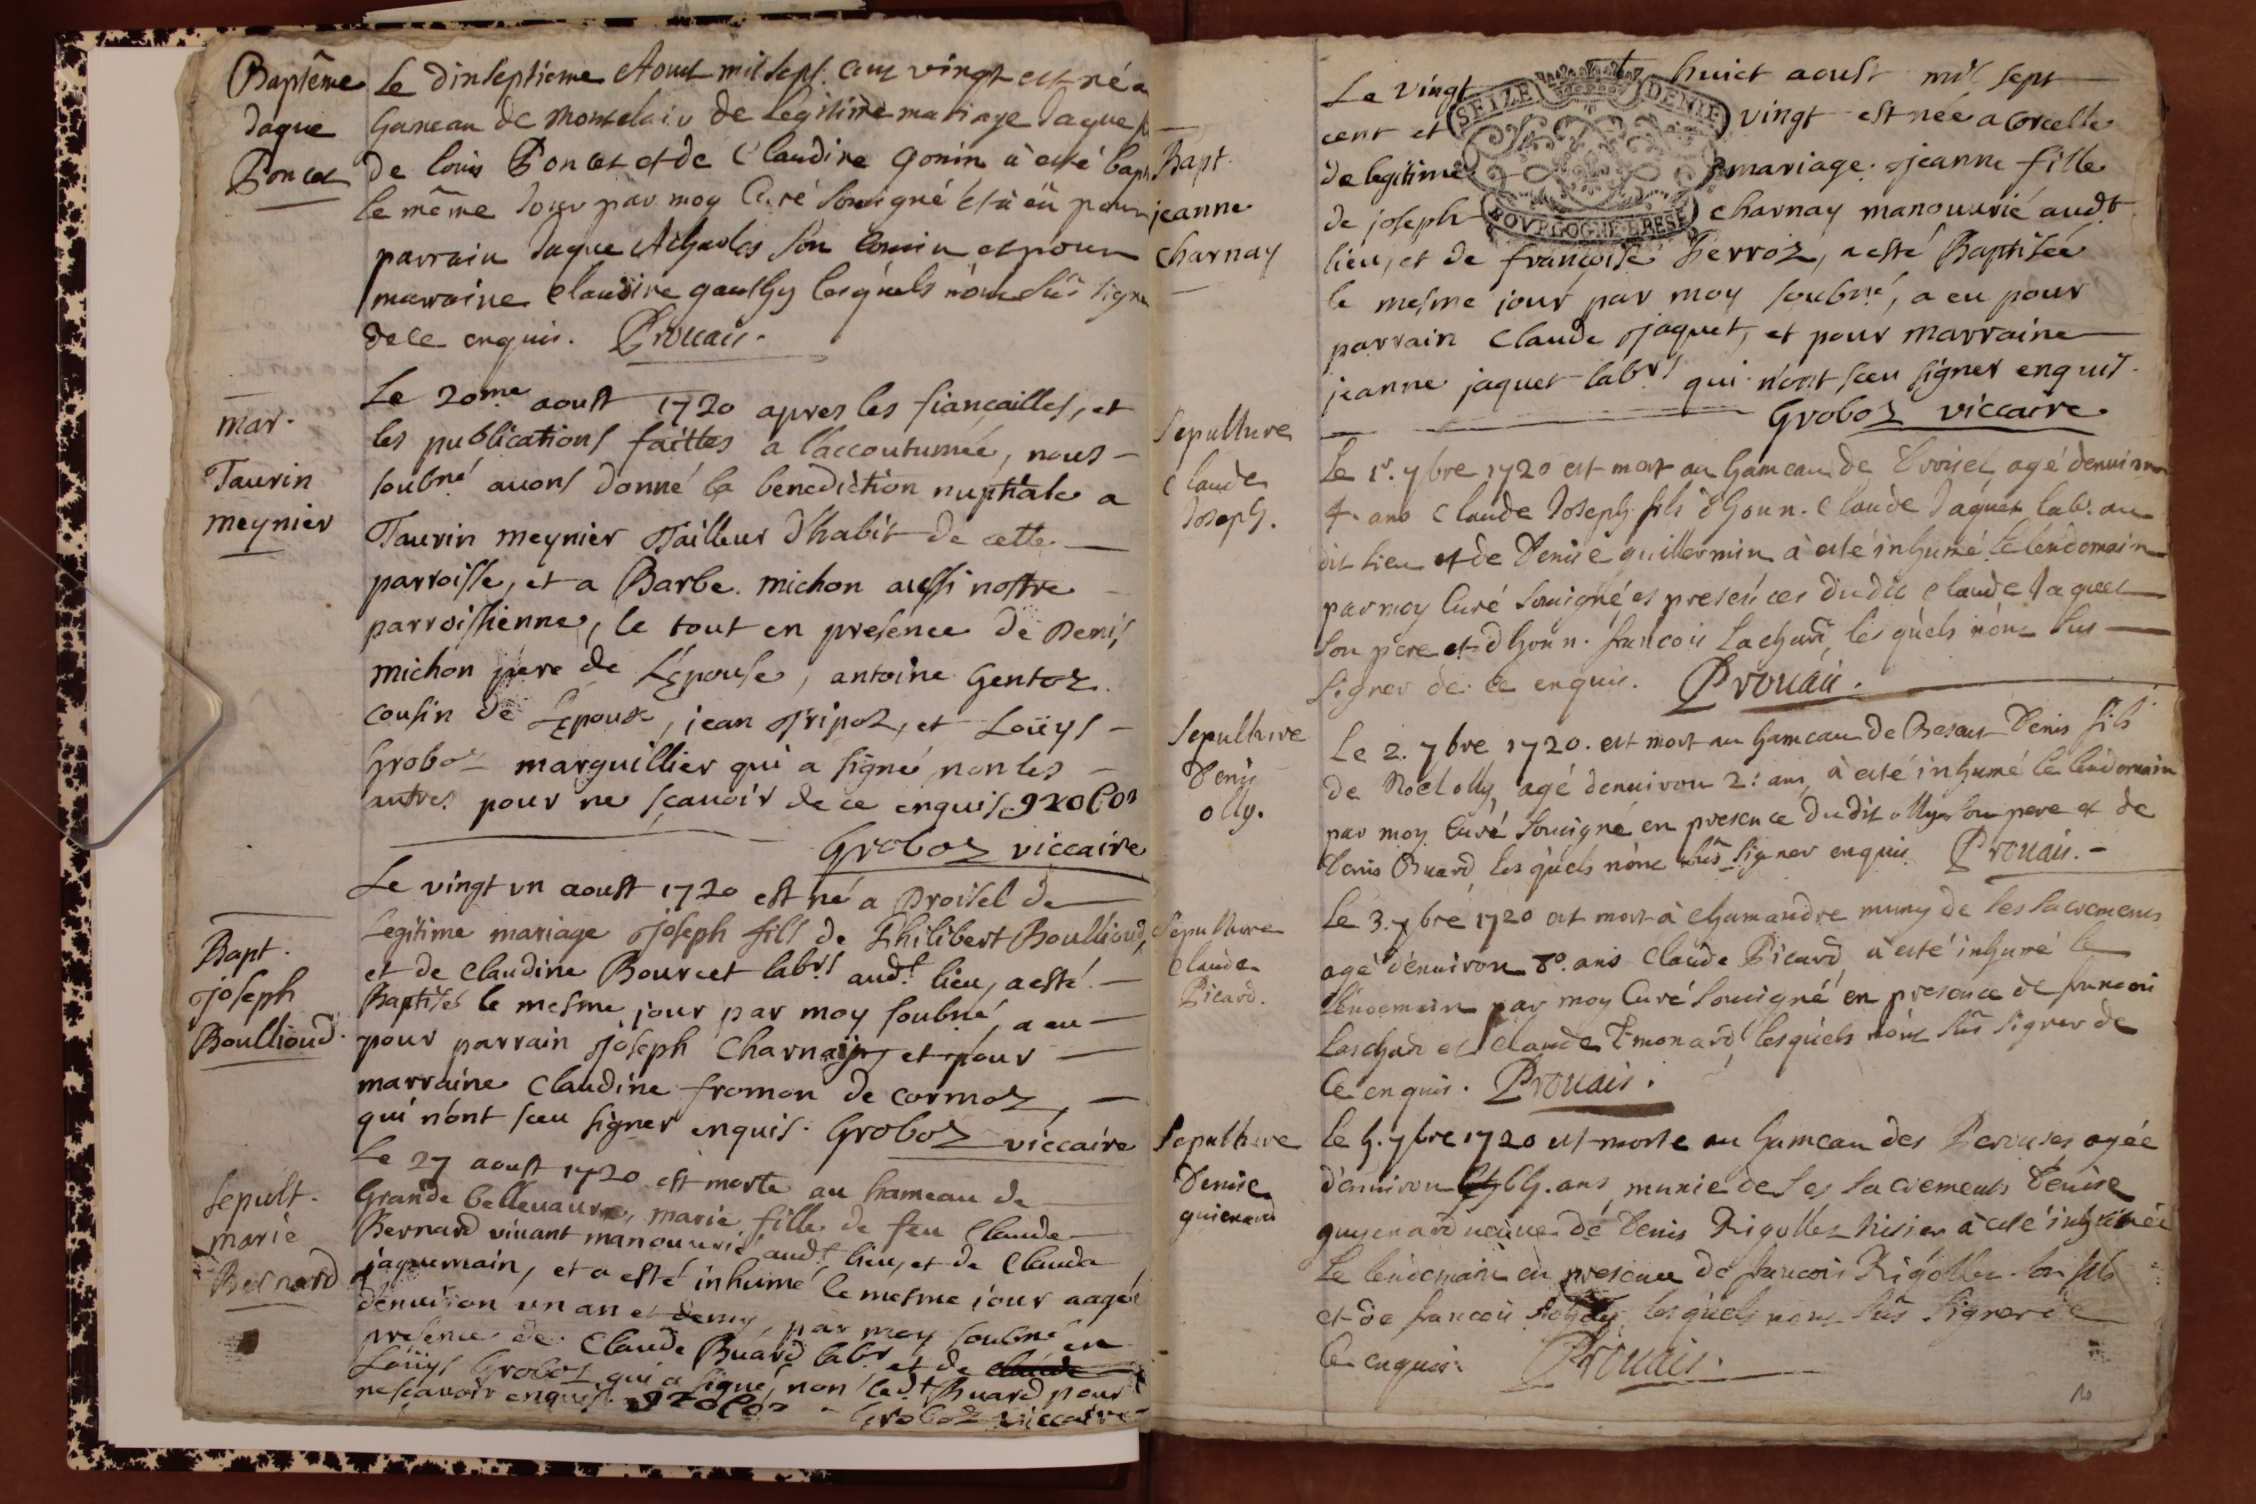 Baptême
Jaque
Poncet
Le dixseptieme Aoust mil sept cent vingt est né a
hameau de Montclair de legitime mariage Jaque f
de louis Poncet et de Claudine gonin à esté bap
le même Jour par moy Curé Sousigné et à eü pour
parrain Jaque Acharles son Cousin et pour
marraine Claudine gauthy lesquels nont sus signe
de ce enquis. Prouais.
mar.
Taurin
meynier
Le 20me aoust 1720 apres les fiançailles, et
les publications faittes a l'accoutumée, nous
soubné auons donné la benediction nuptiale a
Taurin meynier Tailleur d'habit de cette
parroisse, et a Barbe michon aussi nostre
parroissienne, le tout en presence de Denis
michon pere de L'Epouse, antoine Gentoz
cousin de L'Epoux, jean Tripoz, et Loüys
Groboz marguillier qui a signé non les
autres pour ne scauoir de ce enquis groboz
Groboz viccaire
Bapt.
Joseph
Boullioud.
Le vingt vn aoust 1720 est né a Droisel de
Legitime mariage Joseph fils de Philibert Boullioud,
et de Claudine Bourcet labrs audt lieu, a esté
Baptisé le mesme jour par moy soubné, a eu
pour parrain Joseph Charnay et pour
marraine Claudine fromon de cormoz,
qui n'ont sceu signer enquis. Groboz viccaire
sepult.
marie
Bernard
Le 27 aoust 1720 est morte au hameau de
Grande belleuaure, marie fille de feu Claude
Bernard viuant manouurié audt lieu, et de Clauda
jaquemain, et a esté inhumé le mesme jour aagée
denuiron un an et demy, par moy soubné en
presence de Claude Buard labr et de claude
Loüys Groboz qui a signé, non ledt Buard pour
ne scauoir enquis. groboz Groboz viccaire
Bapt.
jeanne
Charnay
SEIZE DENIE
BOVRGOGNE BRESE
Le Vingt huict aoust mil sept
cent et vingt est née a Corcelle
de legitime mariage jeanne fille
de joseph Charnay manouurié audt
lieu, et de françoise Perroz, a esté Baptisée
le mesme jour par moy soubné, a eu pour
parrain Claude Jaquet, et pour marraine
jeanne jaquet labrs qui n'ont sceu signer enquis.
Groboz viccaire
Sepulture
Claude
Joseph.
Le 1r. 7bre 1720 est mort au hameau de Droisel agé denuiron
4. ans Claude Joseph fils d'honn. Claude Jaquet labr. au
dit lieu et de Denise guillermin à esté inhumé le lendemain
par moy Curé Sousigné es presences dudit Claude Jaquet
son pere et d'honn. francois Lachard, lesquels nont sus
signer de ce enquis. Prouais.
Sepulture
Denis
olly.
Le 2. 7bre 1720. est mort au hameau de Besace Denis fils
de Noel olly, agé denuiron 2: ans, à esté inhumé le lendemain
par moy Curé Sousigné en presence dudit olly son pere et de
Denis Buard lesquels nont sus signer enquis Prouais.
Sepulture
Claude
Picard.
Le 3. 7bre 1720 est mort à Chamandre muny de ses sacremens
agé denuiron 80. ans Claude Picard à esté inhumé le
lendemain par moy Curé Sousigné en presence de francois
Laschar et Claude Emonard lesquels nont sus signer de
ce enquis. Prouais.
Sepulture
Denise
guienard
Le 4. 7bre 1720 est morte au hameau des Perouses agée
d'enuiron 64. ans munie de ses sacrements Denise
guyenard veuue de Denis Rigollet à esté inhumée
Le lendemain en presence de francois Rigollet son fils
et de francois lesquels nont sus signer de
ce enquis. Prouais.